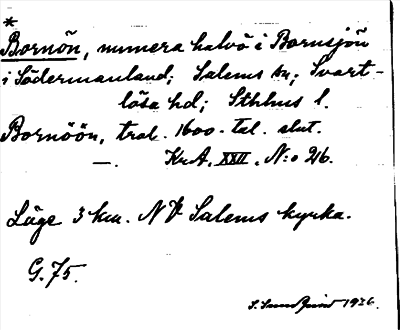 *
Bornön, numera halvö i Bornsjön
i Södermanland; Salems sn; Svart-
lösa hd; Sthlms l.
Bornöön, trol. 1600-tal. slut.
—. Kr.A. XXII. N:o 26.
Läge 3 km. NV Salems kyrka.
G. 75.
S. Sundquist 1936.